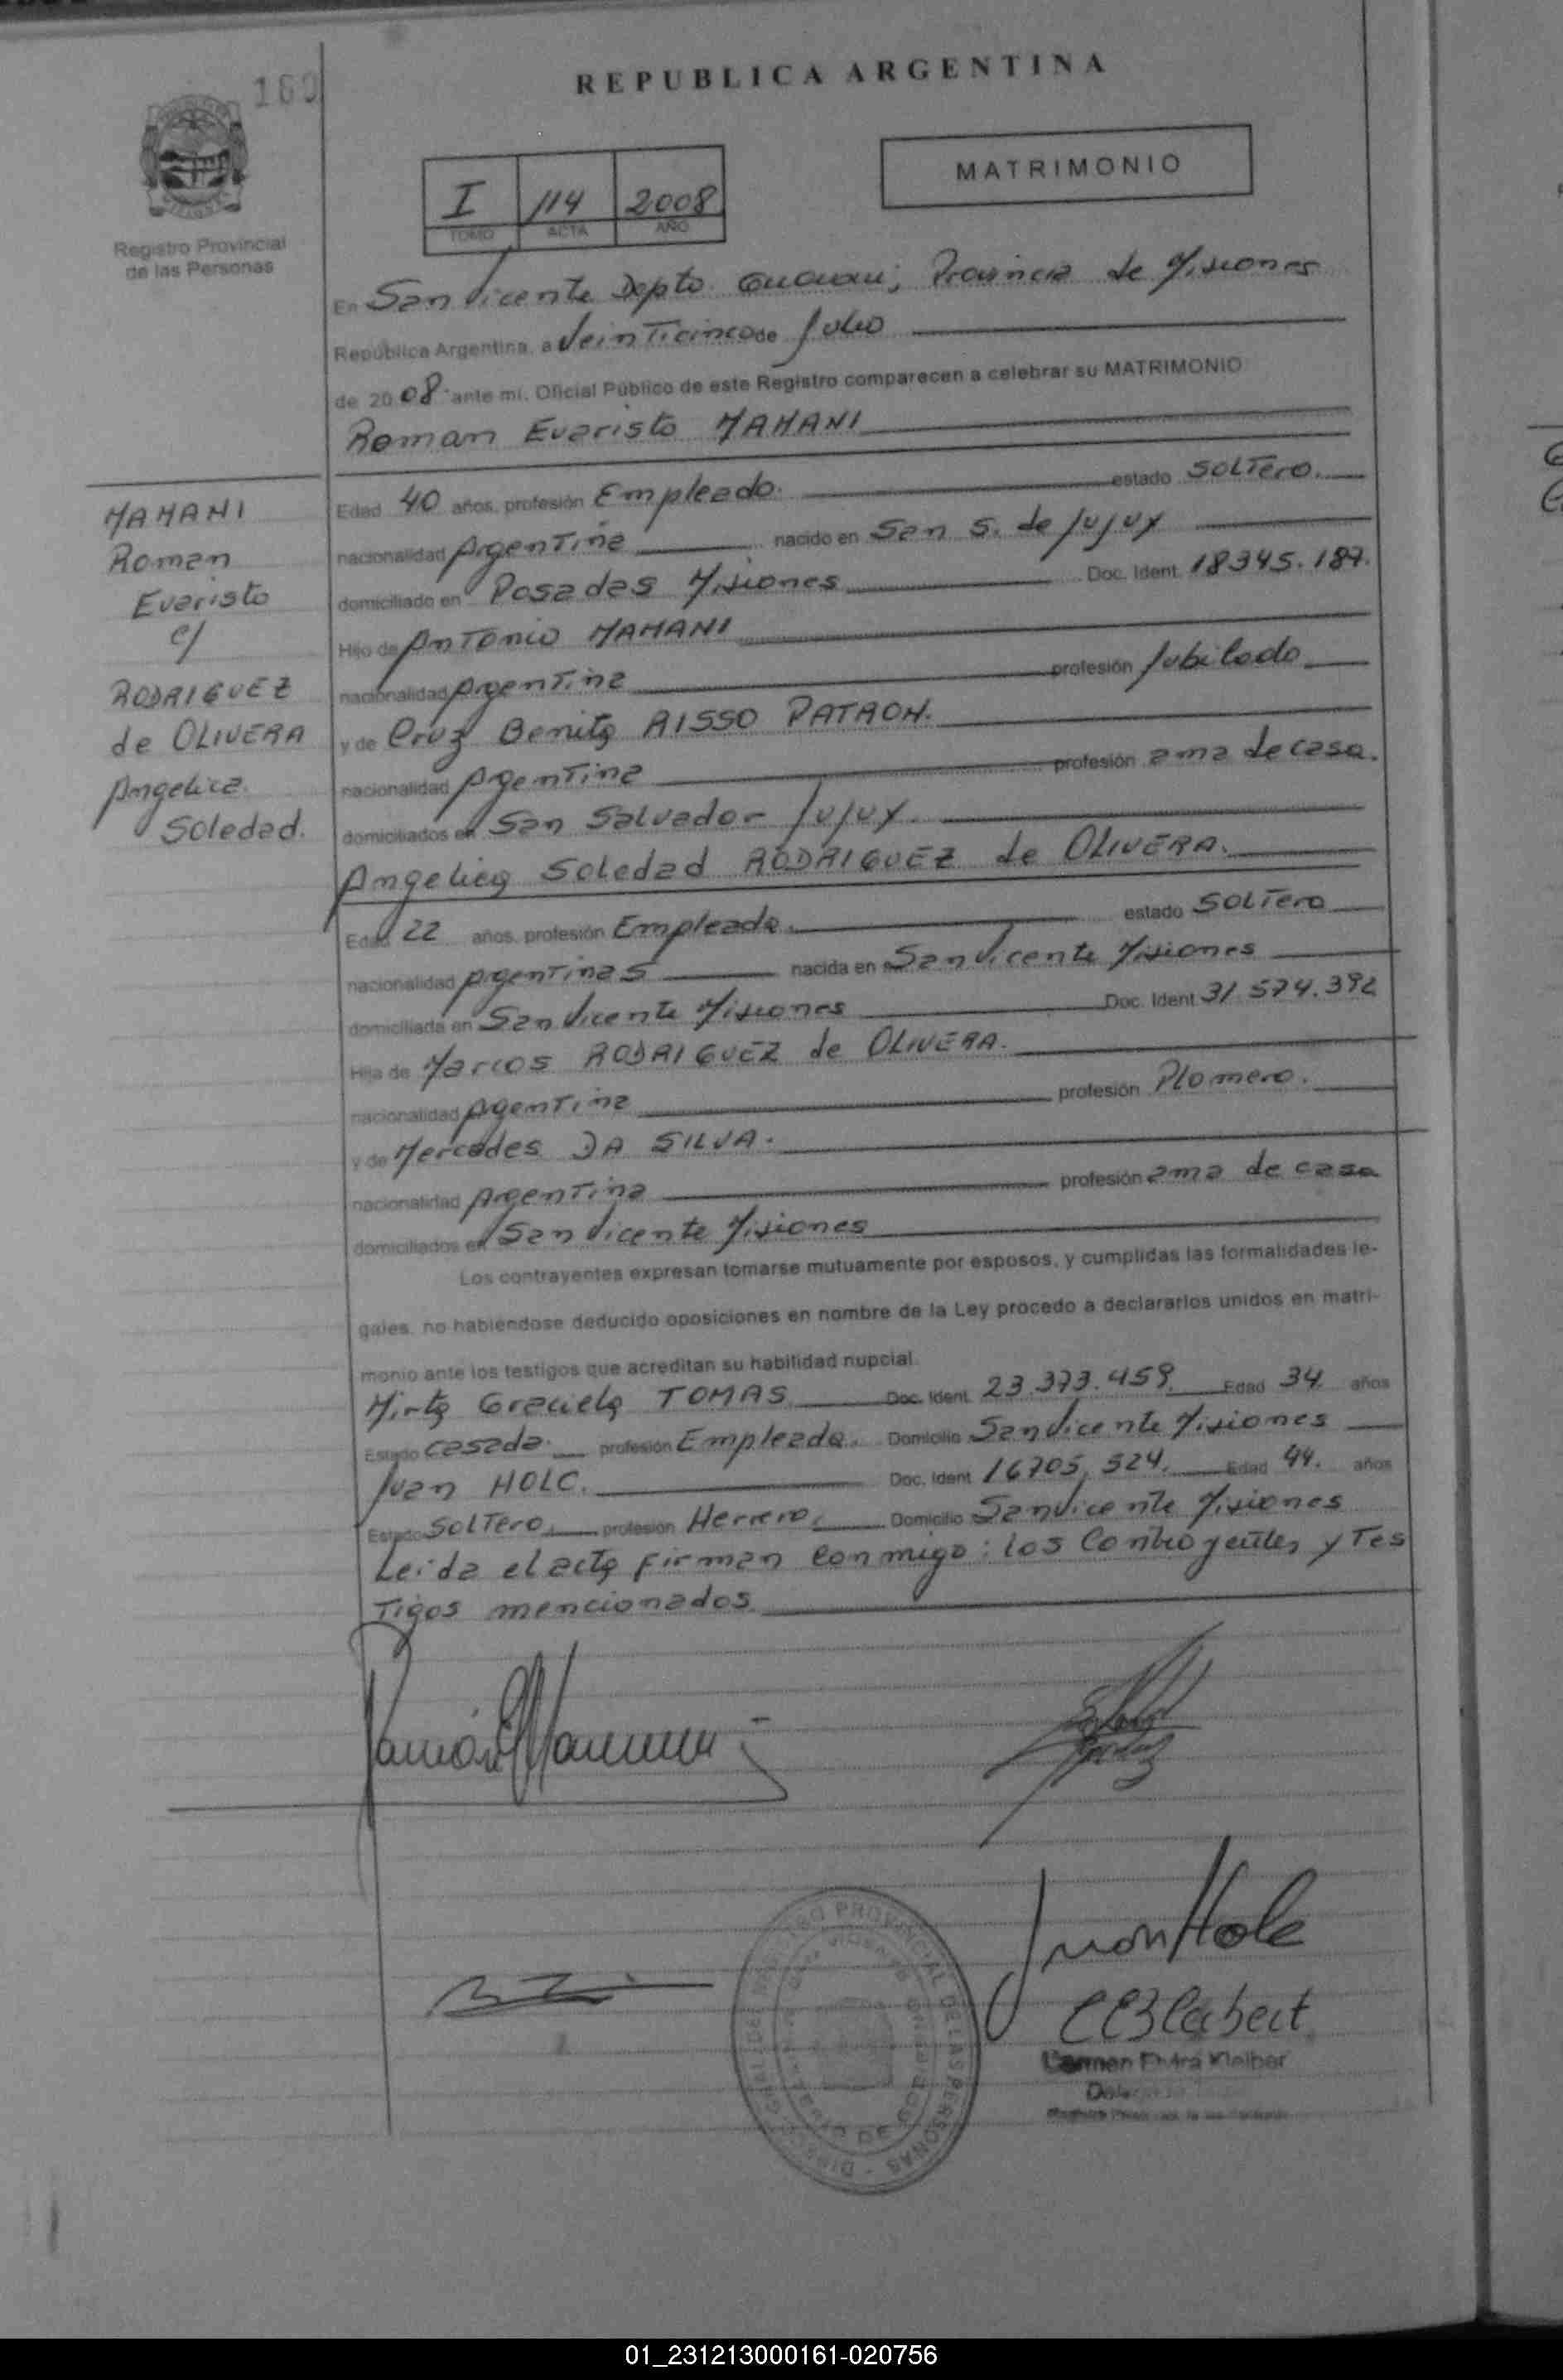 160
REPUBLICA ARGENTINA
MATRIMONIO
I 114 2008
TOMO ACTA AÑO
Registro Provincial
de las Personas
En San Vicente Depto. Guarani, Provincia de Misiones
República Argentina, a Veinticinco de Julio
de 2008 ante mi, Oficial Público de este Registro comparecen a celebrar su MATRIMONIO
Roman Evaristo MAMANI
MAMANI
Roman
Evaristo
c/
RODRIGUEZ
de OLIVERA
Angelica
Soledad.
Edad 40 años, profesión Empleado. estado SOLTero.
nacionalidad Argentina nacido en San S. de Jujuy
domiciliado en Posadas Misiones Doc. Ident. 18345.187.
Hijo de Antonio MAMANI
nacionalidad Argentina profesión Jubilado
y de Cruz Benita RISSO PATRON.
nacionalidad Argentina profesión ama de casa.
domiciliados en San Salvador Jujuy.
Angelica Soledad RODRIGUEZ de OLIVERA.
Edad 22 años, profesión Empleada. estado SOLTera
nacionalidad Argentinas nacida en San Vicente Misiones
domiciliada en San Vicente Misiones Doc. Ident 31.574.392
Hija de Marcos RODRIGUEZ de OLIVERA.
nacionalidad Argentina profesión Plomero.
y de Mercedes DA SILVA.
nacionalidad Argentina profesión ama de casa
domiciliados en San Vicente Misiones
Los contrayentes expresan tomarse mutuamente por esposos, y cumplidas las formalidades le-
gales, no habiéndose deducido oposiciones en nombre de la Ley procedo a declararlos unidos en matri-
monio ante los testigos que acreditan su habilidad nupcial.
Mirta Graciela TOMAS Doc. Ident. 23.373.459. Edad 34. años
Estado casada. profesión Empleada. Domicilio San Vicente Misiones
Juan HOLC. Doc. Ident 16705.524. Edad 44. años
Estado SOLTero. profesión Herrero. Domicilio San Vicente Misiones
Leida el acta firman conmigo: los Contrayentes y Tes
Tigos mencionados.
Juan Holc
Carmen Kleiber
01_231213000161-020756